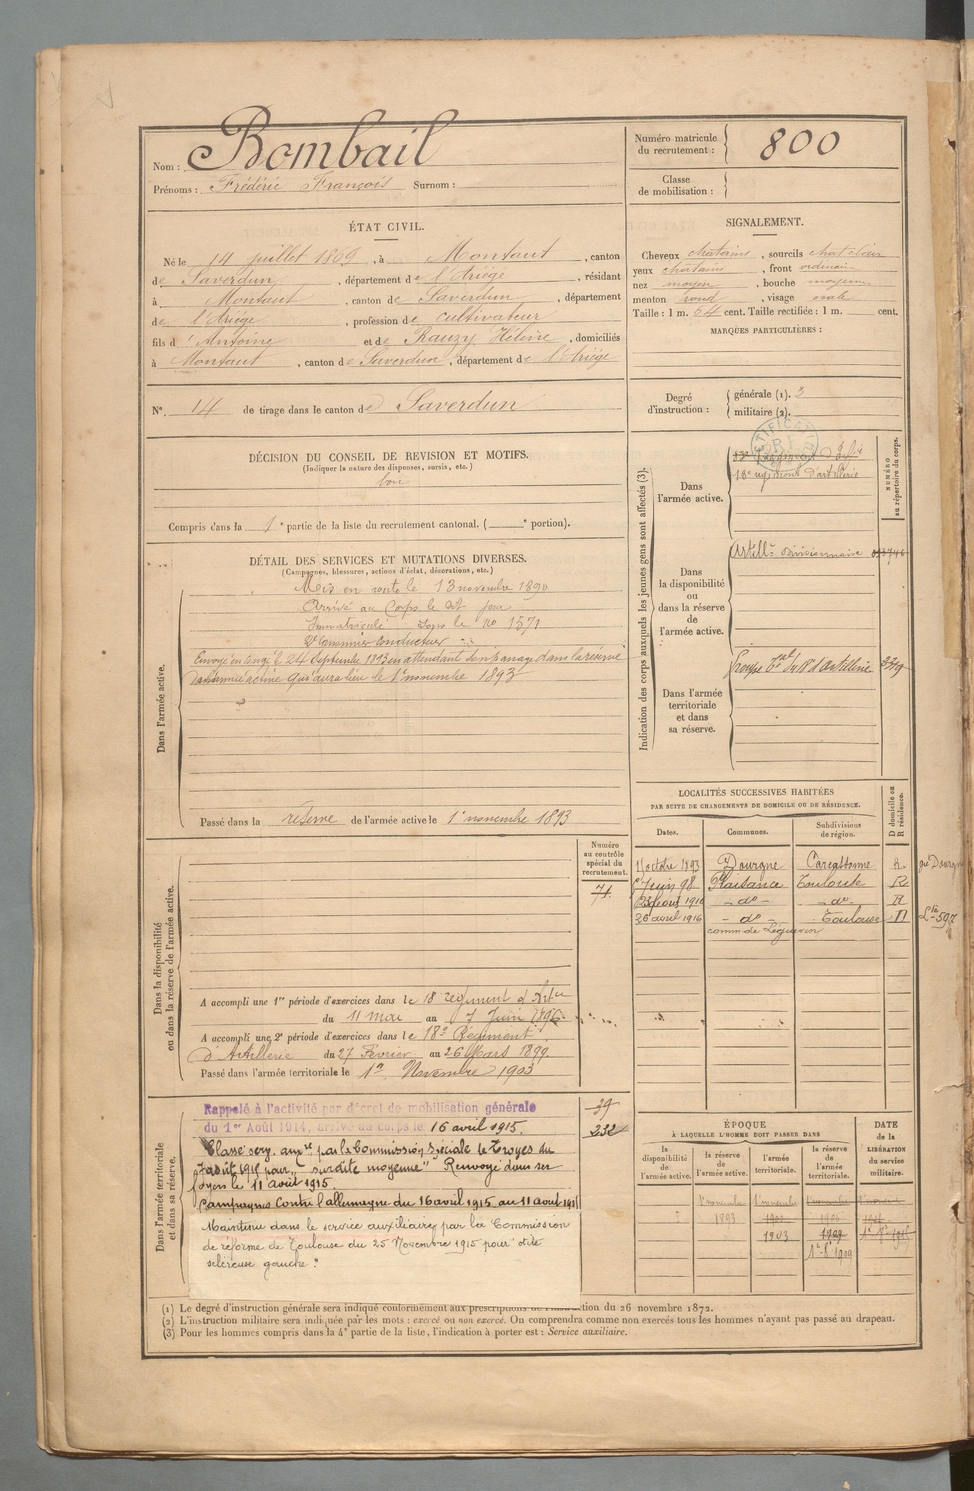 Nom : Bombail
Prénoms : Frédéric François Surnom :
Numéro matricule du recrutement : 800
Classe de mobilisation :
ÉTAT CIVIL.
Né le 14 juillet 1869, à Montaut, canton
de Saverdun, département de l'Ariège, résidant
à Montaut, canton de Saverdun, département
de l'Ariège, profession de cultivateur
fils d'Antoine et de Rauzy Hélène, domiciliés
à Montaut, canton de Saverdun, département de l'Ariège
N°. 14 de tirage dans le canton de Saverdun
SIGNALEMENT.
Cheveux chatains, sourcils
yeux chatains, front ordinaire
nez moyen, bouche moyenne
menton rond, visage ovale
Taille : 1 m. 64 cent. Taille rectifiée : 1 m. cent.
MARQUES PARTICULIÈRES :
Degré d'instruction :
générale (1). 3
militaire (2).
DÉCISION DU CONSEIL DE REVISION ET MOTIFS.
(Indiquer la nature des dispenses, sursis, etc.)
bon
Compris dans la 1e partie de la liste du recrutement cantonal. ( e portion).
DÉTAIL DES SERVICES ET MUTATIONS DIVERSES.
(Campagnes, blessures, actions d'éclat, décorations, etc.)
Dans l'armée active.
Mis en route le 13 novembre 1890
Arrivé au Corps le dit jour
Immatriculé sous le no 1571
2e Canonnier conducteur
Envoyé en congé le 24 Septembre 1893 en attendant son passage dans la réserve
de l'armée active qui aura lieu le 1er novembre 1893
Passé dans la réserve de l'armée active le 1er novembre 1893
Indication des corps auxquels les jeunes gens sont affectés (3).
NUMÉRO au répertoire du corps.
Dans l'armée active.
18e régiment d'artillerie
Dans la disponibilité ou dans la réserve de l'armée active.
Artillie divisionnaire
Dans l'armée territoriale et dans sa réserve.
Groupe Tal du 18e d'artillerie
LOCALITÉS SUCCESSIVES HABITÉES
PAR SUITE DE CHANGEMENTS DE DOMICILE OU DE RÉSIDENCE.
Dates. Communes. Subdivisions de région. D domicile ou R résidence.
11 octre 1893 Dourgne Carcassonne R.
Juin 98 Plaisance Toulouse R
1910 - do - - do - R
26 avril 1916 - do - Toulouse
comm de Léguevin
Dans la disponibilité ou dans la réserve de l'armée active.
Numéro au contrôle spécial du recrutement.
71.
A accompli une 1re période d'exercices dans le 18 régiment d'Artie
du 11 mai au 7 Juin 1896.
A accompli une 2e période d'exercices dans le 18e Régiment
d'Artillerie du 27 Février au 26 Mars 1899.
Passé dans l'armée territoriale le 1er Novembre 1903
Dans l'armée territoriale et dans sa réserve.
39
232
Rappelé à l'activité par décret de mobilisation générale
du 1er Août 1914, arrivé au corps le 16 avril 1915.
Classé serv. auxre par la Commission spéciale de Troyes du
7 août 1915 pour "surdité moyenne" Renvoyé dans ses
foyers le 11 août 1915.
Campagnes Contre l'allemagne du 16 avril 1915 au 11 aout 1915
Maintenu dans le service auxiliaire par la Commission
de réforme de Toulouse du 25 Novembre 1915 pour "otite
scléreuse gauche."
ÉPOQUE
À LAQUELLE L'HOMME DOIT PASSER DANS
la disponibilité de l'armée active. la réserve de l'armée active. l'armée territoriale. la réserve de l'armée territoriale.
DATE de la LIBÉRATION du service militaire.
1er novembre 1er novembre
1893
1903 1909
(1) Le degré d'instruction générale sera indiqué conformément aux prescriptions de l'instruction du 26 novembre 1872.
(2) L'instruction militaire sera indiquée par les mots : exercé ou non exercé. On comprendra comme non exercés tous les hommes n'ayant pas passé au drapeau.
(3) Pour les hommes compris dans la 4e partie de la liste, l'indication à porter est : Service auxiliaire.